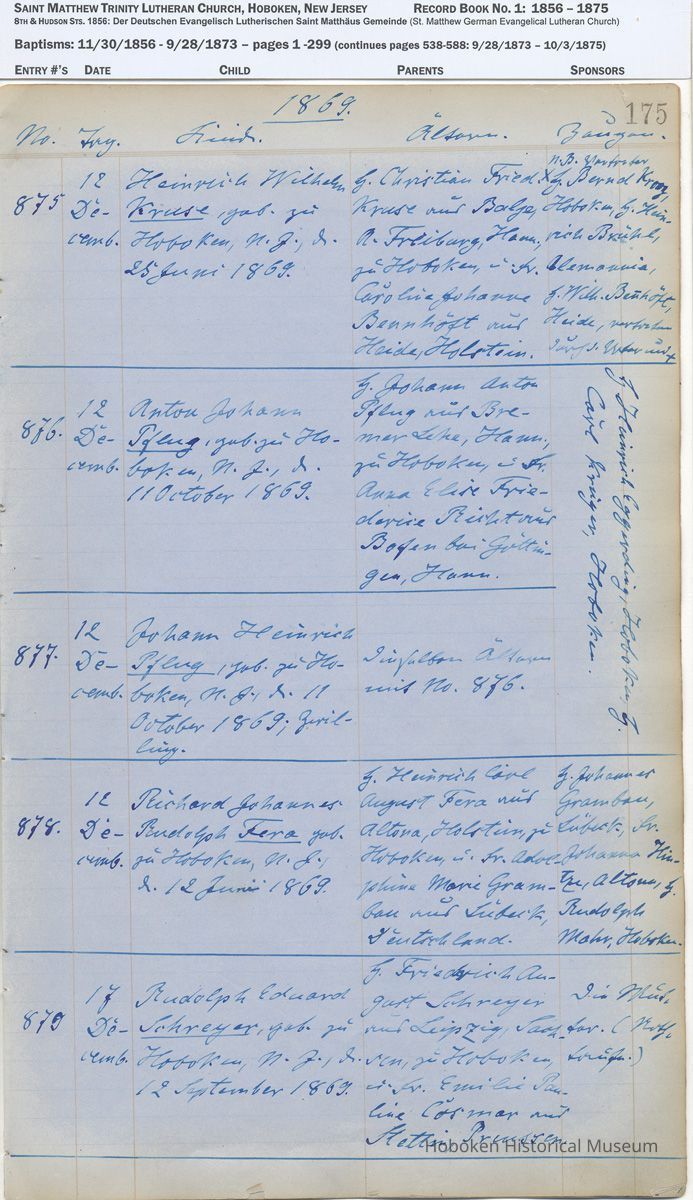 SAINT MATTHEW TRINITY LUTHERAN CHURCH, HOBOKEN, NEW JERSEY RECORD BOOK NO. 1: 1856 – 1875
8TH & HUDSON STS. 1856: Der Deutschen Evangelisch Lutherischen Saint Matthäus Gemeinde (St. Matthew German Evangelical Lutheran Church)
Baptisms: 11/30/1856 - 9/28/1873 – pages 1 -299 (continues pages 538-588: 9/28/1873 – 10/3/1875)
ENTRY #'S DATE CHILD PARENTS SPONSORS
1869. 175
No. Tag. Kind. Ältern. Zeugen.
875
12
De-
cemb.
Heinrich Wilhelm
Kruse, geb. zu
Hoboken, N. J., d.
25 Juni 1869.
H. Christian Fried.
Kruse aus Balge,
A. Freiburg, Hann.,
zu Hoboken, u. Fr.
Caroline Johanne
Bennhöft aus
Heide, Holstein.
N.B. Vertreter
H. Bernd
Hoboken, H. Hein-
rich Brühl,
Alemannia,
H. Wilh. Bennhöft,
Heide, vertreten
durch d. Vater
876.
12
De-
cemb.
Anton Johann
Pflug, geb. zu Ho-
boken, N. J., d.
11 October 1869.
H. Johann Anton
Pflug aus Bre-
mer Lehe, Hann.,
zu Hoboken, u. Fr.
Anna Elise Frie-
derice Richt aus
bei Göttin-
gen, Hann.
H. Heinrich Eggerding, Hoboken, H.
Carl Krüger, Hoboken.
877.
12
De-
cemb.
Johann Heinrich
Pflug, geb. zu Ho-
boken, N. J., d. 11
October 1869; Zwil-
ling.
Dieselben Ältern
mit No. 876.
878.
12
De-
cemb.
Richard Johannes
Rudolph Fera geb.
zu Hoboken, N. J.,
d. 12 Juni 1869.
H. Heinrich Carl
August Fera aus
Altona, Holstein, zu
Hoboken, u. Fr. Adol-
phine Marie Gram-
bau aus Lübeck,
Deutschland.
H. Johannes
Grambau,
Lübeck, Fr.
Johanna Hin-
tze, Altona, H.
Rudolph
Mohr, Hoboken.
879
17
De-
cemb.
Rudolph Eduard
Schreyer, geb. zu
Hoboken, N. J., d.
12 September 1869.
H. Friedrich Au-
gust Schreyer
aus Leipzig, Sach-
sen, zu Hoboken,
u. Fr. Emilie Pau-
line Cösmar aus
Stettin, Preussen.
Die Mut-
ter. (Noth-
taufe.)
Hoboken Historical Museum